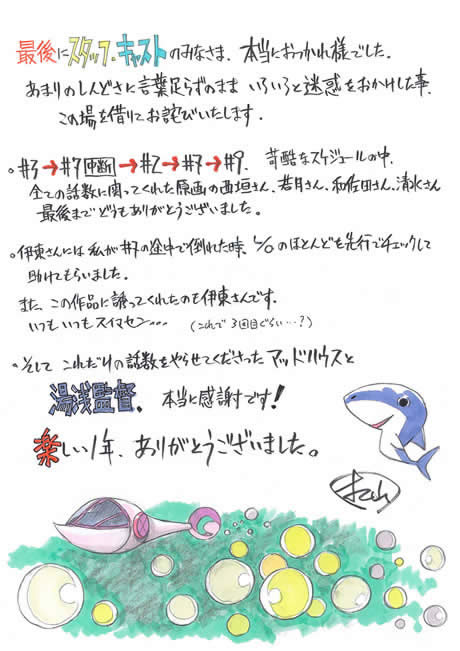 最後にスタッフ・キャストのみなさま、本当におつかれ様でした。
あまりのしんどさに言葉足らずのまま いろいろと迷惑をおかけした事、
この場を借りてお詫びいたします。
。#3→#7中断→#2→#7→#9. 苛酷なスケジュールの中、
全ての話数に関ってくれた原画の西垣さん、若月さん、和佐田さん、清水さん
最後までどうもありがとうございました。
。伊東さんには私が#7の途中で倒れた時、L/Oのほとんどを先行でチェックして
助けてもらいました。
また、この作品に誘ってくれたのも伊東さんです。
いつもいつもスイマセン… (これで3回目ぐらい…?)
。そして これだけの話数をやらせてくださったマッドハウスと
湯浅監督、本当に感謝です!
楽しい1年、ありがとうございました。